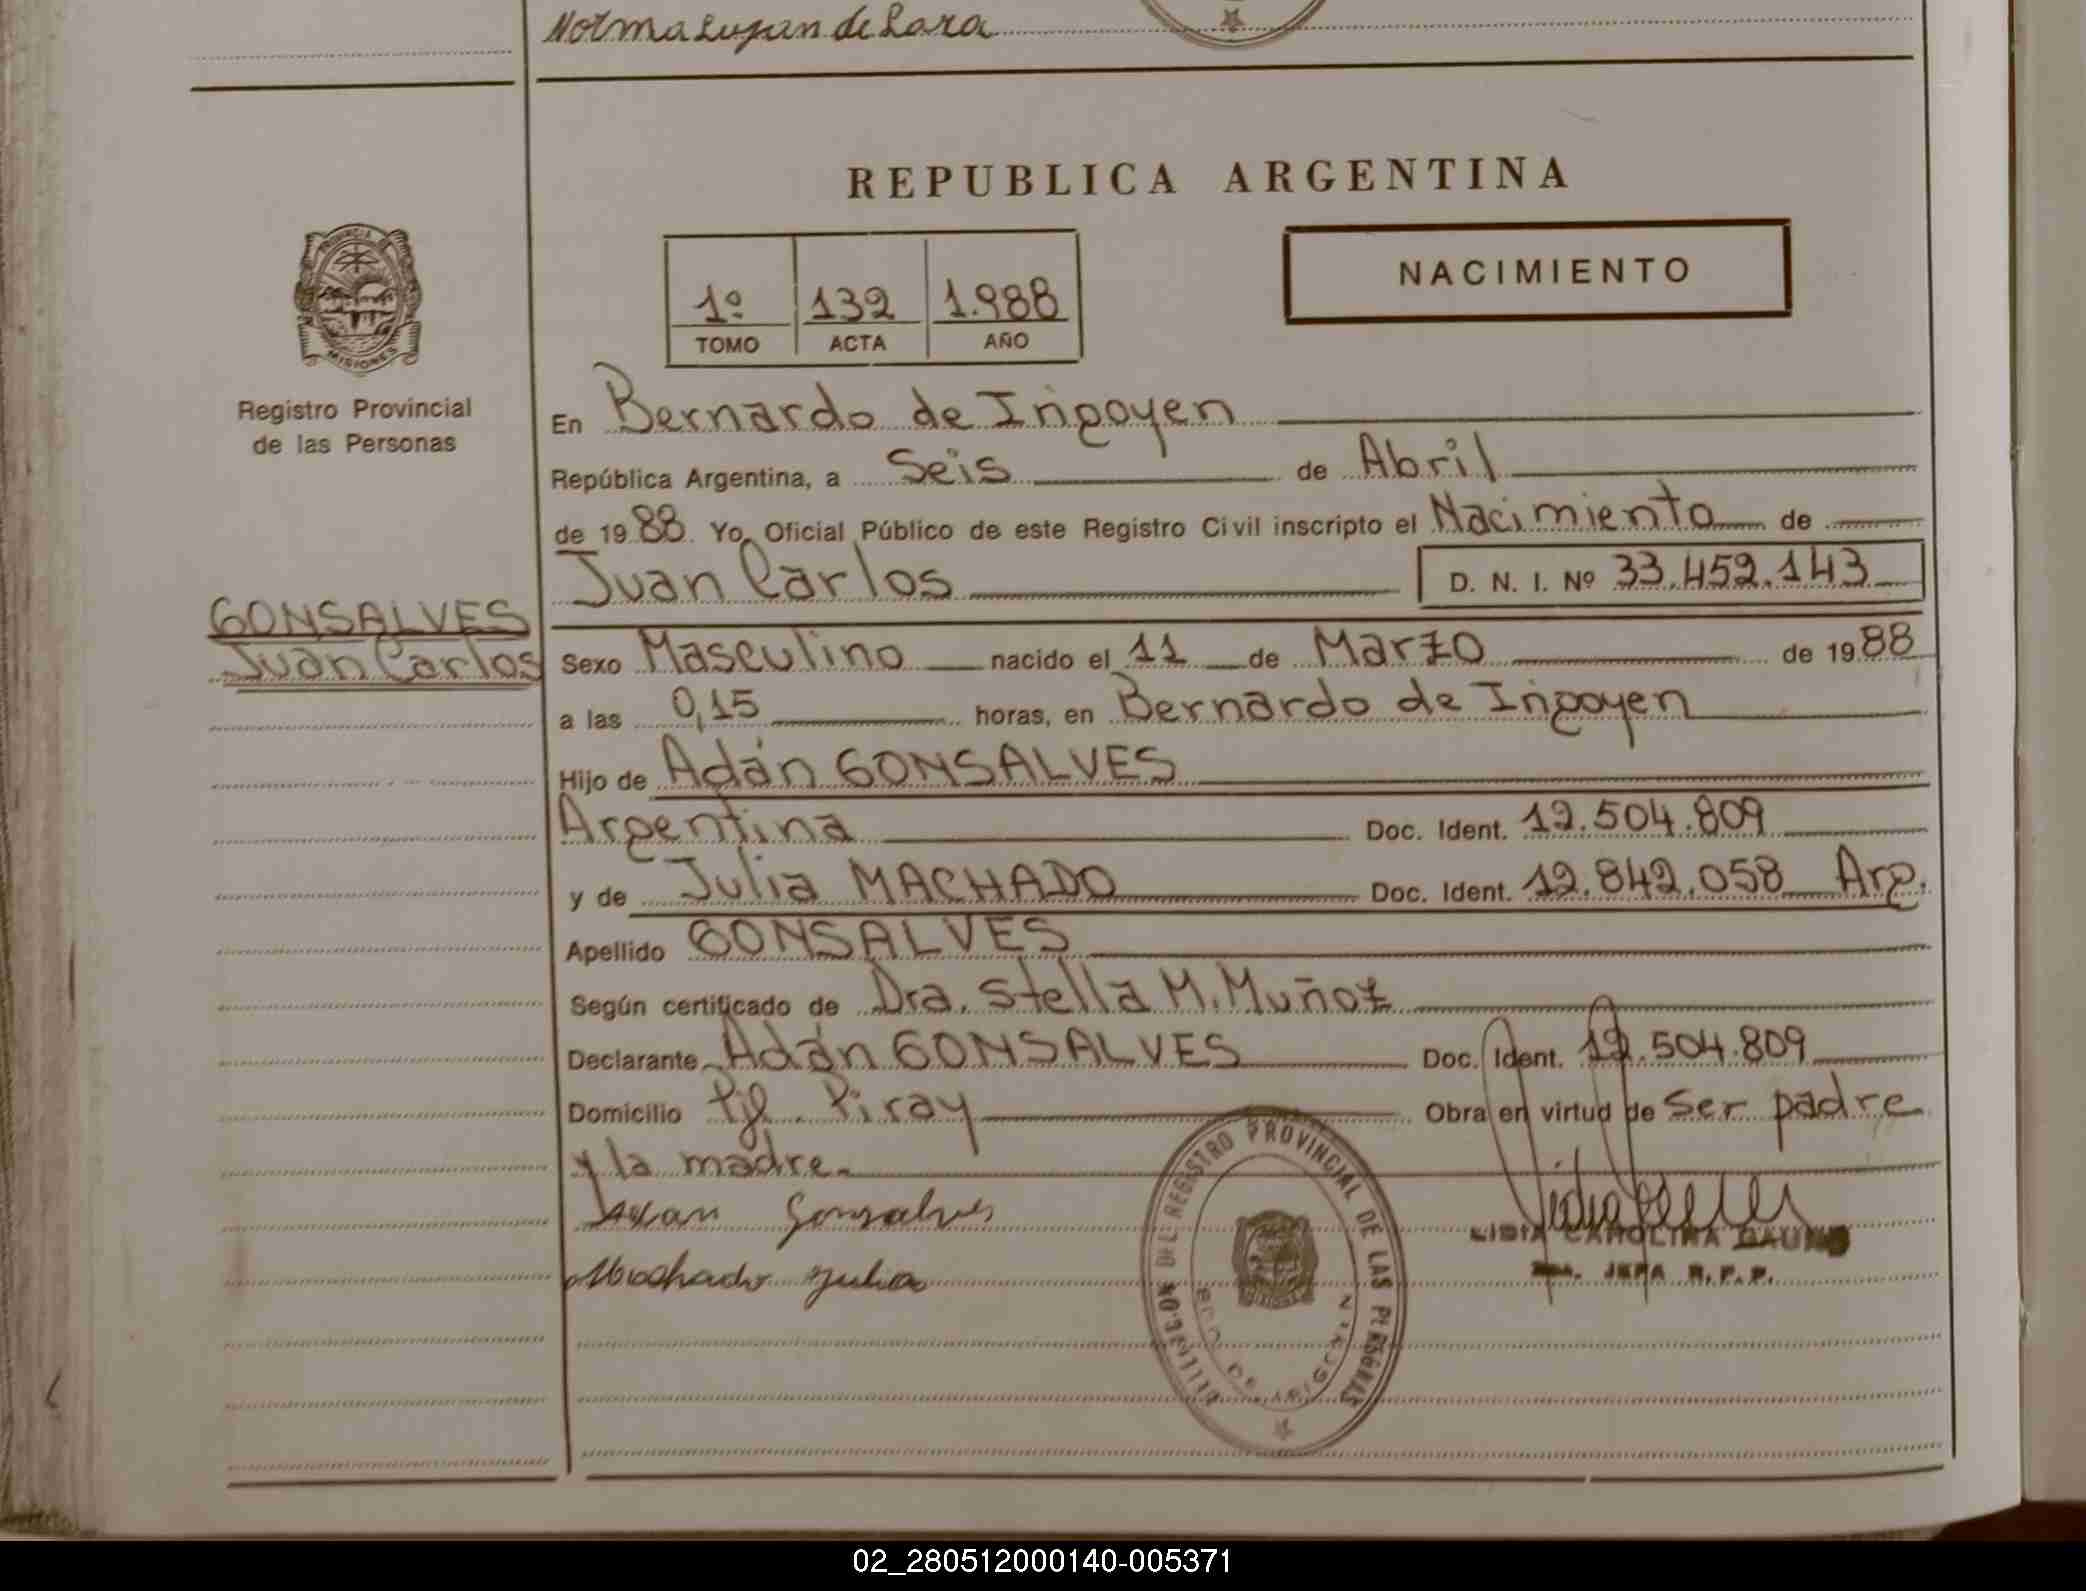 Norma Lujan de Lara
REPUBLICA ARGENTINA
PROVINCIA
MISIONES
1º 132 1.988
TOMO ACTA AÑO
NACIMIENTO
Registro Provincial
de las Personas
En Bernardo de Irigoyen
República Argentina, a Seis de Abril
de 1988. Yo, Oficial Público de este Registro Civil inscripto el Nacimiento de
Juan Carlos D. N. I. Nº 33.452.143
GONSALVES
Juan Carlos
Sexo Masculino nacido el 11 de Marzo de 1988
a las 0,15 horas, en Bernardo de Irigoyen
Hijo de Adán GONSALVES
Argentina Doc. Ident. 12.504.809
y de Julia MACHADO Doc. Ident. 12.842.058 Arg.
Apellido GONSALVES
Según certificado de Dra. Stella M. Muñoz
Declarante Adán GONSALVES Doc. Ident. 12.504.809
Domicilio Pje. Piray Obra en virtud de Ser padre
y la madre.
Gonsalves
Machado Julia
DEL REGISTRO PROVINCIAL DE LAS PERSONAS
LIDIA CAROLINA
JEFA R.P.P.
02_280512000140-005371